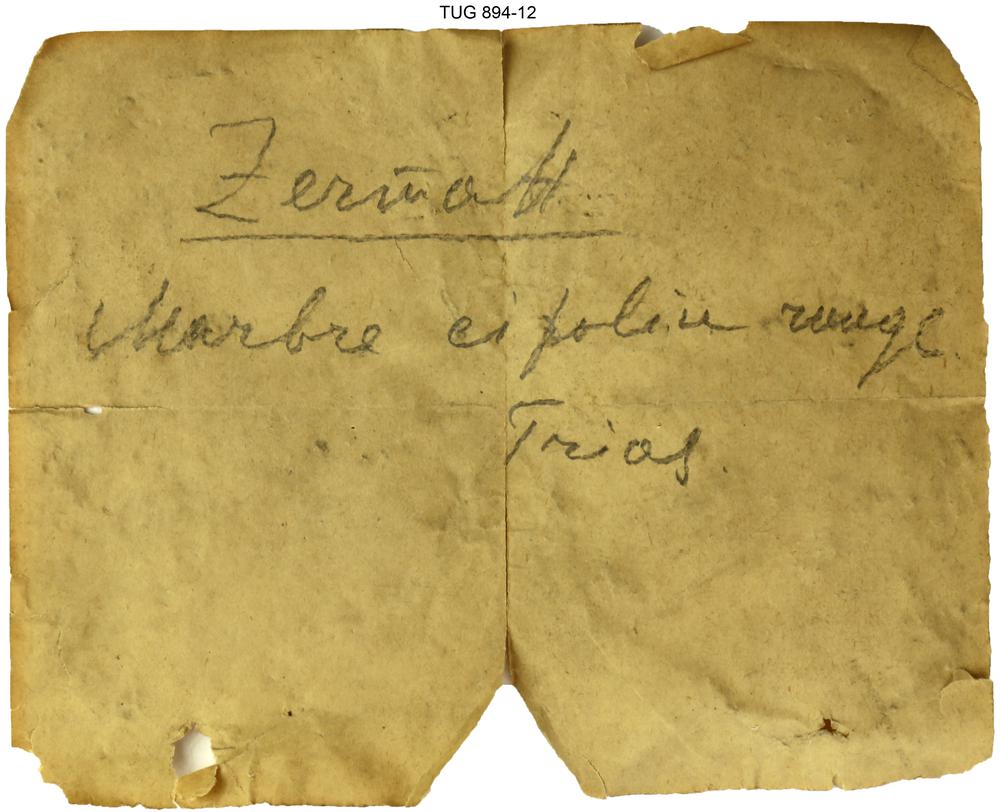 TUG 894-12
Zermatt
Marbre cipolin rouge.
Trias.